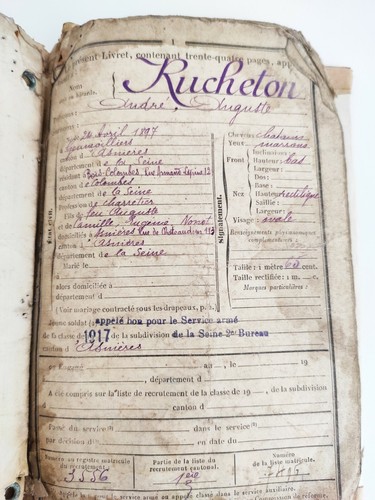 présent Livret, contenant trente-quatre pages, app
Nom
Rucheton
André, Auguste
Avril 1897
Gennevilliers
canton d'Asnières
département de la Seine
Bois-Colombes, rue
Colombes
département de la Seine
Profession de charretier
Fils de feu Auguste
et de Camille Eugénie
Asnières, rue de Chateaudun 113
canton d'Asnières
département de la Seine
Marié le
alors domiciliée à
département d
(Voir mariage contracté sous les drapeaux, p.
État civil.
Signalement.
Cheveux chatains
Yeux marrons
Front
Inclinaison
Hauteur bas
Largeur
Nez
Dos:
Base:
Hauteur rectiligne
Saillie:
Largeur:
Visage: ovale
Renseignements physionomiques complémentaires:
Taille: 1 mètre 60 cent.
Taille rectifiée: 1 m. c.
Marques particulières:
Jeune soldat appelé bon pour le Service armé
de la classe de 1917 de la subdivision de la Seine 2e Bureau
canton d'Asnières
au, le 19
, département d
A été compris sur la liste de recrutement de la classe de 19 , de la subdivision
canton d
Passé du service dans le service
par décision du en date du
Numéro au registre matricule du recrutement
3556
Partie de la liste du recrutement cantonal.
1ère
Numéro de la liste matricule.